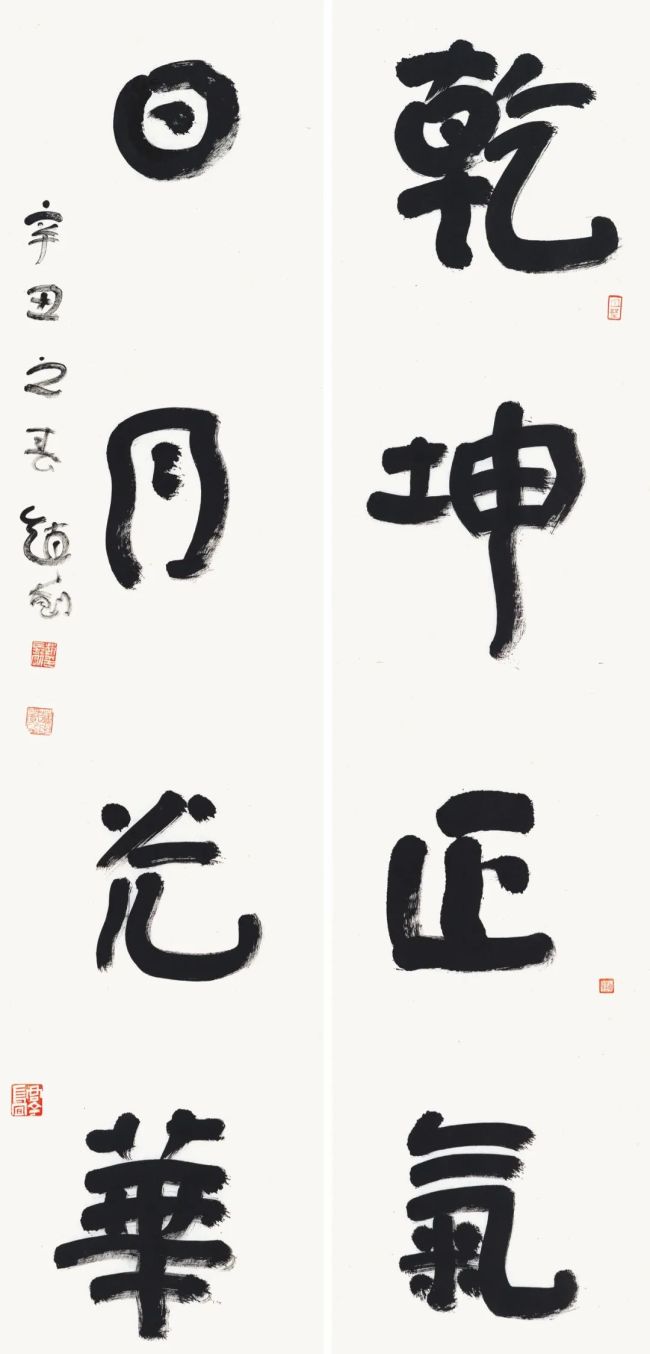 乾坤正氣
日月光華
辛丑之春